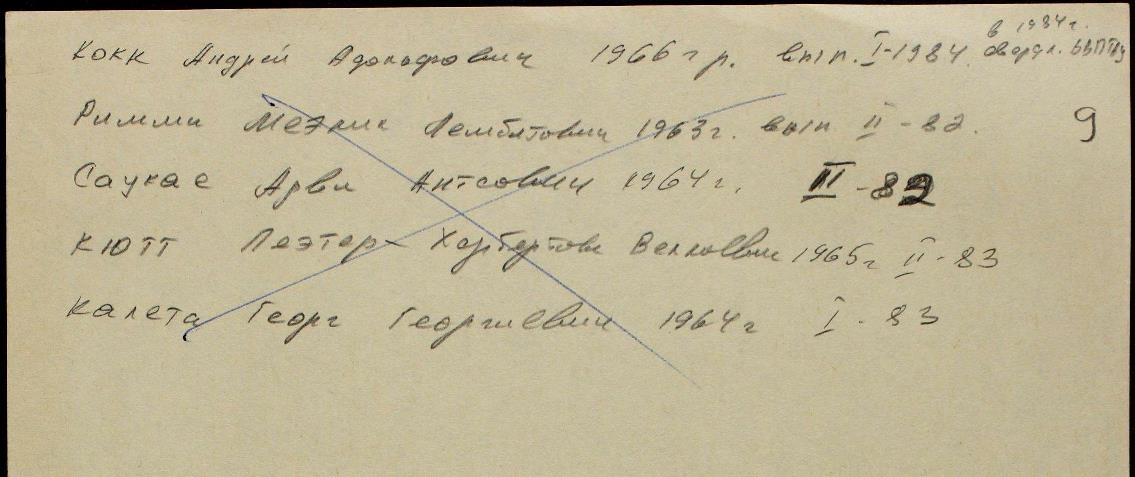 в 1984г.
Кокк Андрей Адольфович 1966г р. вып. I-1984 свердл. ВВПТАУ
Римми Лембитович 1963г. вып II - 82. 9
Саукас Арви Антсович 1964г. III - 82
Кютт Пеэтер Харбертови Велловви 1965г II - 83
Калета Георг Георгиевич 1964г I - 83